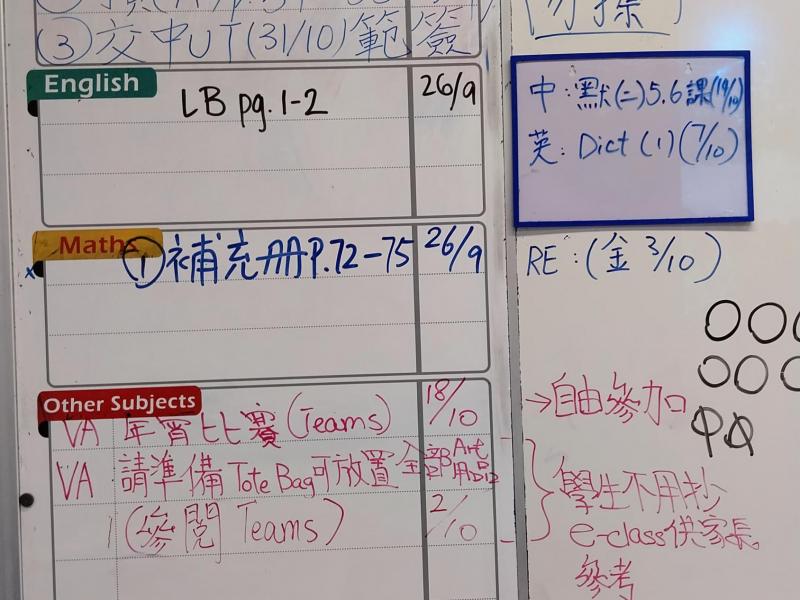 ③ 交中UT(31/10)範簽
English
LB pg. 1-2 26/9
Math
① 補充冊P.72-75 26/9
Other Subjects
VA 年宵比賽 (Teams) 18/10
VA 請準備 Tote Bag 可放置全部Art用品
(參閱 Teams) 2/10
中:默(二)5.6課(19/10)
英:Dict (1) (7/10)
RE:(金 3/10)
→自由參加
學生不用抄
e-class供家長
參考